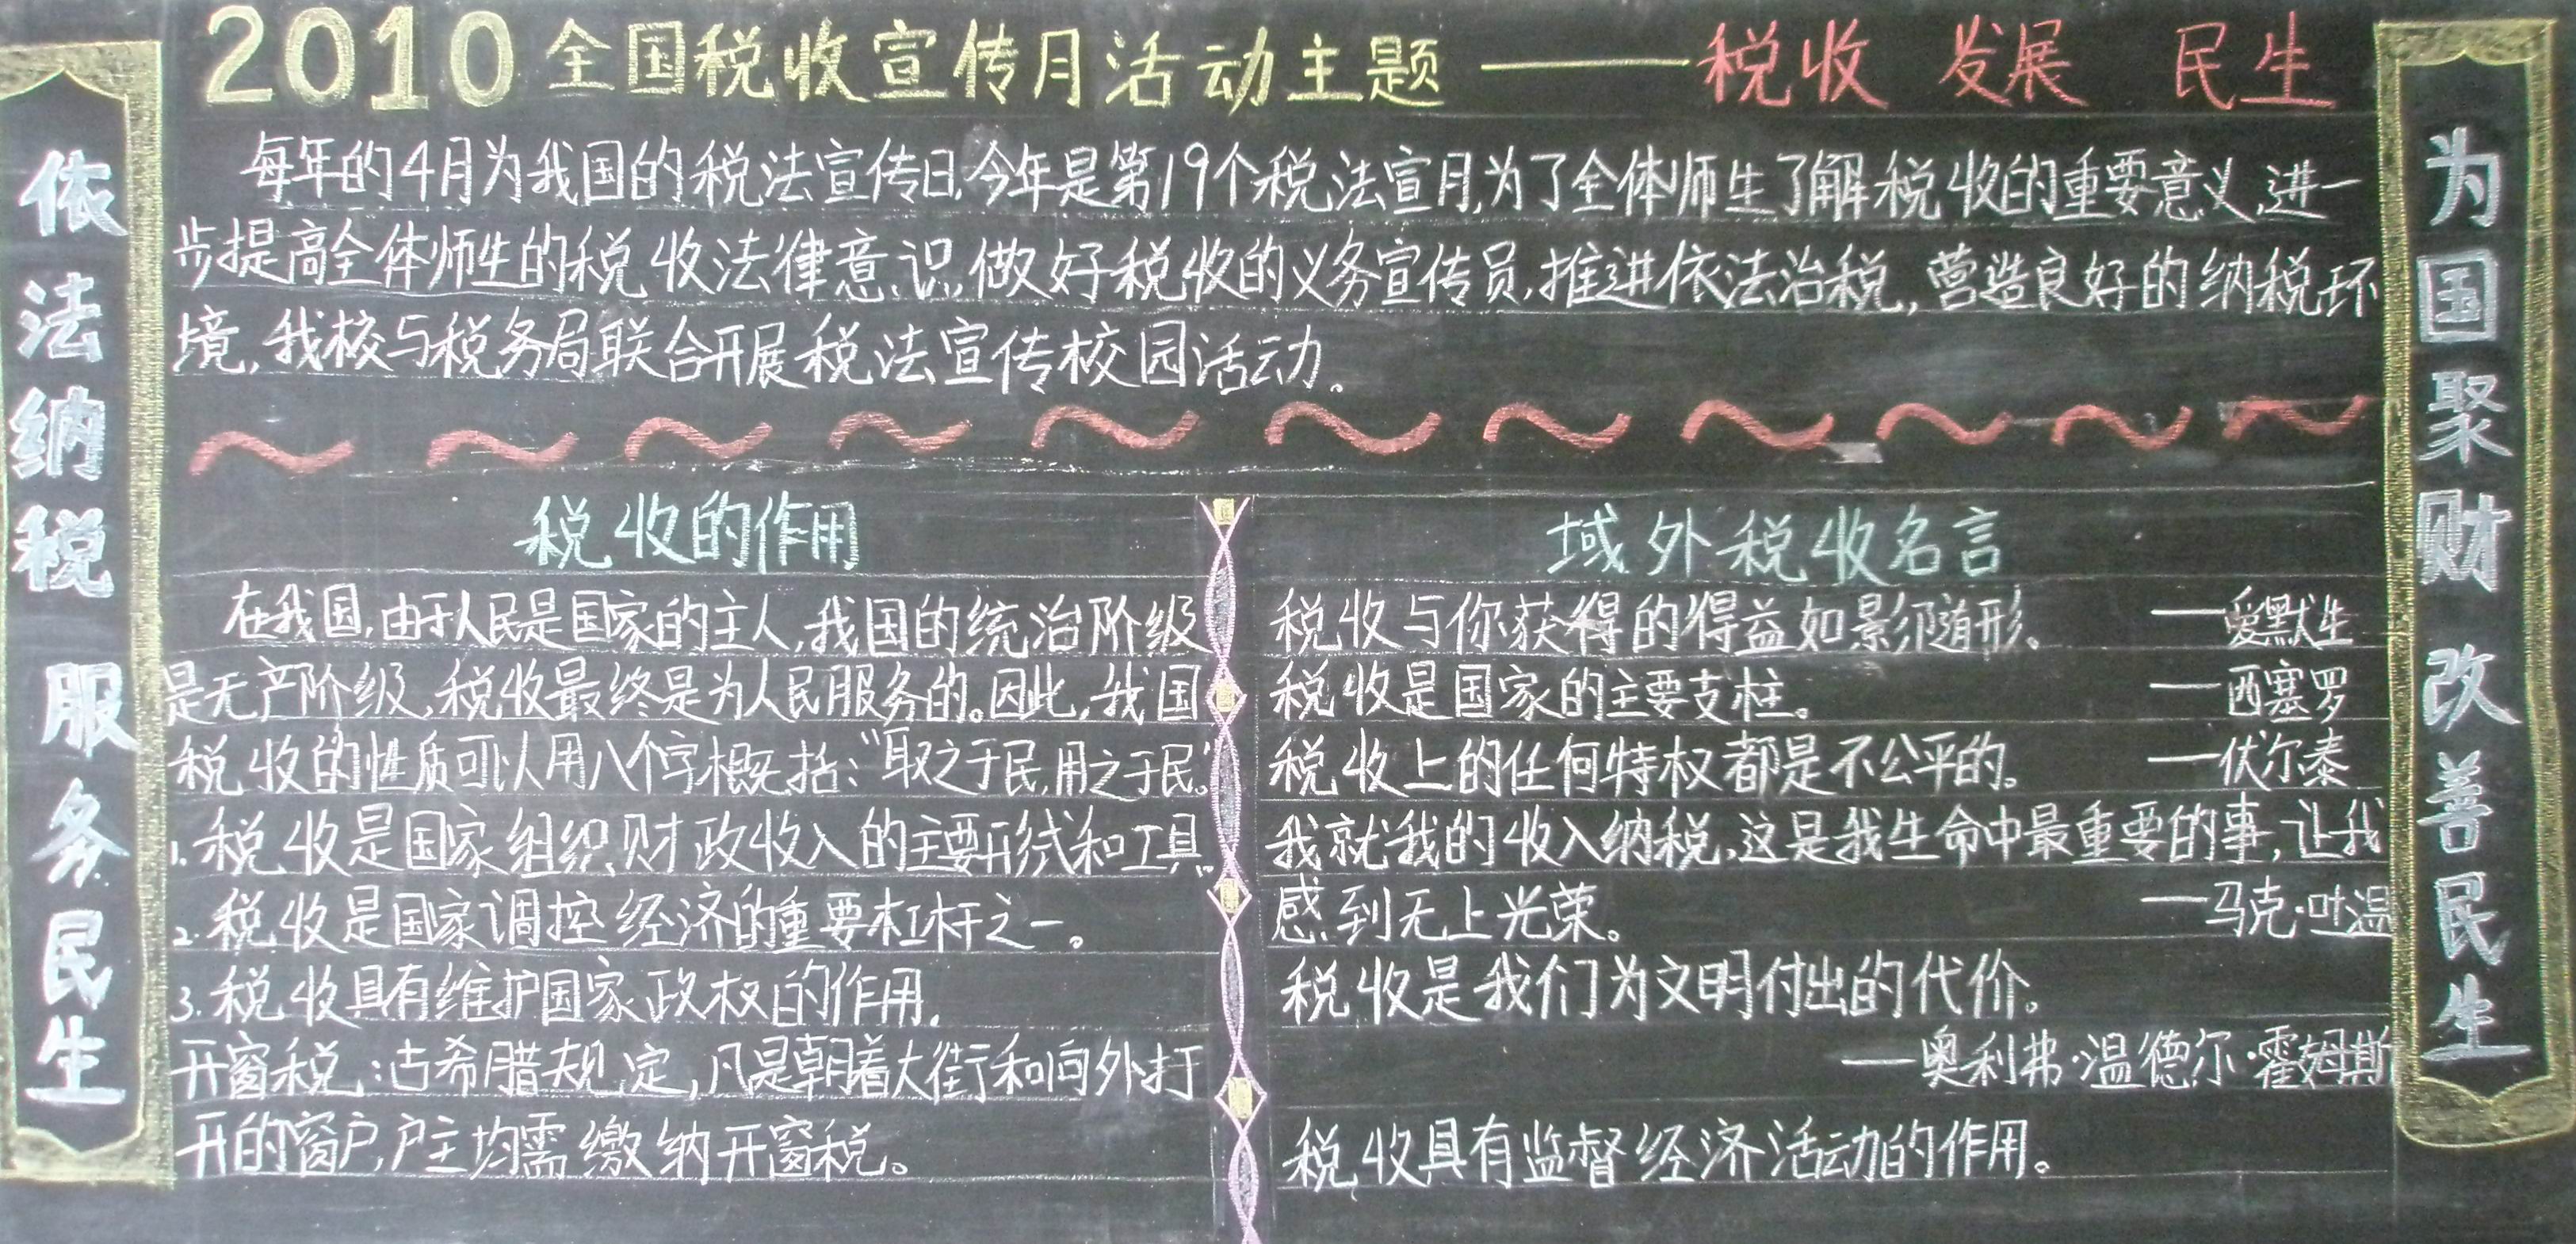 2010全国税收宣传月活动主题——税收 发展 民生
依法纳税 服务民生
每年的4月为我国的税法宣传日,今年是第19个税法宣月,为了全体师生了解税收的重要意义,进一
步提高全体师生的税收法律意识,做好税收的义务宣传员,推进依法治税,营造良好的纳税环
境,我校与税务局联合开展税法宣传校园活动。
税收的作用
在我国,由于人民是国家的主人,我国的统治阶级
是无产阶级,税收最终是为人民服务的。因此,我国
税收的性质可以用八个字概括:“取之于民,用之于民。”
1.税收是国家组织财政收入的主要形式和工具。
2.税收是国家调控经济的重要杠杆之一。
3.税收具有维护国家政权的作用.
开窗税:古希腊规定,凡是朝着大街和向外打
开的窗户,户主均需缴纳开窗税。
域外税收名言
税收与你获得的得益如影随形。 ——爱默生
税收是国家的主要支柱。 ——西塞罗
税收上的任何特权都是不公平的。 ——伏尔泰
我就我的收入纳税,这是我生命中最重要的事,让我
感到无上光荣。 ——马克·吐温
税收是我们为文明付出的代价。
——奥利弗·温德尔·霍姆斯
税收具有监督经济活动的作用。
为国聚财 改善民生